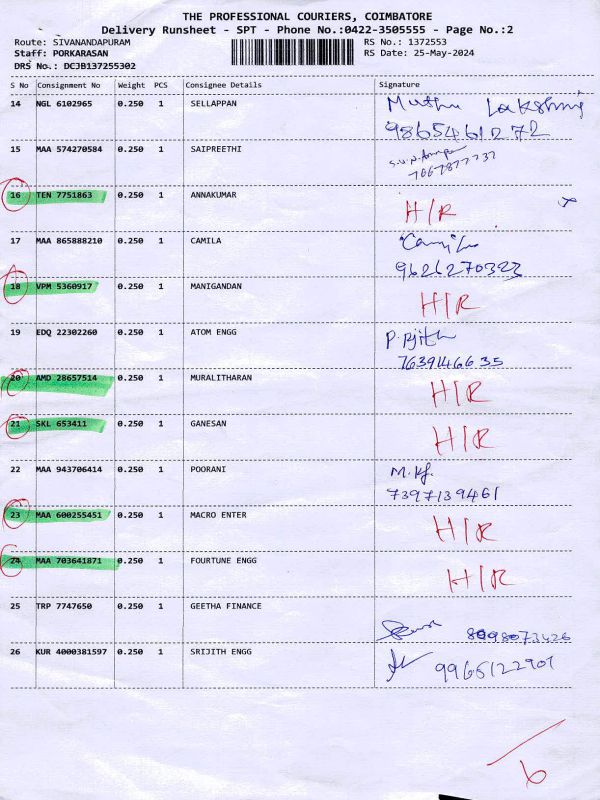 THE PROFESSIONAL COURIERS, COIMBATORE
Delivery Runsheet - SPT - Phone No.:0422-3505555 - Page No.:2
Route: SIVANANDAPURAM RS No.: 1372553
Staff: PORKARASAN RS Date: 25-May-2024
DRS No.: DCJB137255302
S No Consignment No Weight PCS Consignee Details Signature
14 NGL 6102965 0.250 1 SELLAPPAN Muthu Lakshmi
9865461272
15 MAA 574270584 0.250 1 SAIPREETHI
7667877737
16 TEN 7751863 0.250 1 ANNAKUMAR H/R
17 MAA 865888210 0.250 1 CAMILA Camila
9626270323
18 VPM 5360917 0.250 1 MANIGANDAN H/R
19 EDQ 22302260 0.250 1 ATOM ENGG
7639146635
20 AMD 28657514 0.250 1 MURALITHARAN H/R
21 SKL 653411 0.250 1 GANESAN H/R
22 MAA 943706414 0.250 1 POORANI
7397139461
23 MAA 600255451 0.250 1 MACRO ENTER H/R
24 MAA 703641871 0.250 1 FOURTUNE ENGG H/R
25 TRP 7747650 0.250 1 GEETHA FINANCE
8098073426
26 KUR 4000381597 0.250 1 SRIJITH ENGG 9965122901
6